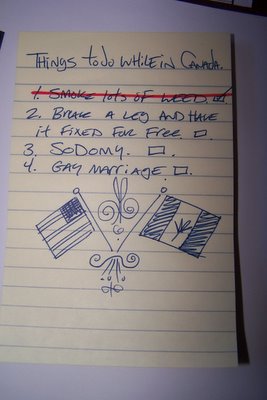 THINGS to do WHILE IN CANADA.
1. SMOKE LOTS OF WEED.
2. BREAK A LEG AND HAVE
it FIXED FOR FREE.
3. SODOMY.
4. GAY MARRIAGE